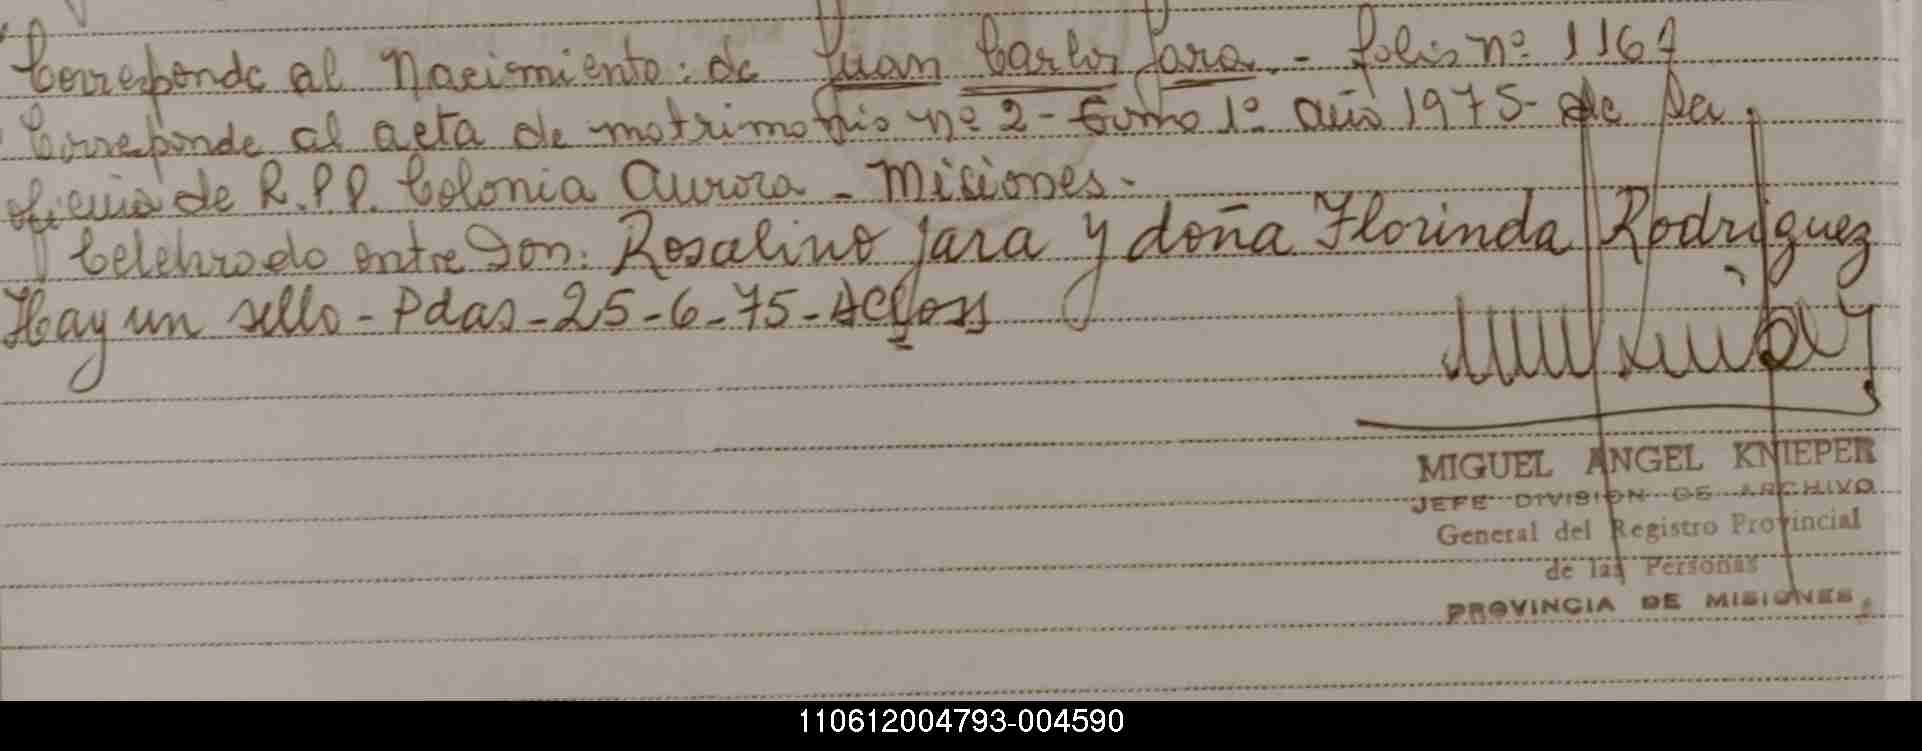 Corresponde al Nacimiento: de Juan Carlos Jara. - folio nº 1167
Corresponde al acta de matrimonio nº 2 - tomo 1º año 1975 - de la
oficina de R.P.P. Colonia Aurora - Misiones -
Celebrado entre Don: Rosalino Jara y doña Florinda Rodriguez
Hay un sello - Pdas - 25-6-75 -
MIGUEL ANGEL KNIEPER
JEFE DIVISION DE ARCHIVO
General del Registro Provincial
de las Personas
PROVINCIA DE MISIONES
110612004793-004590